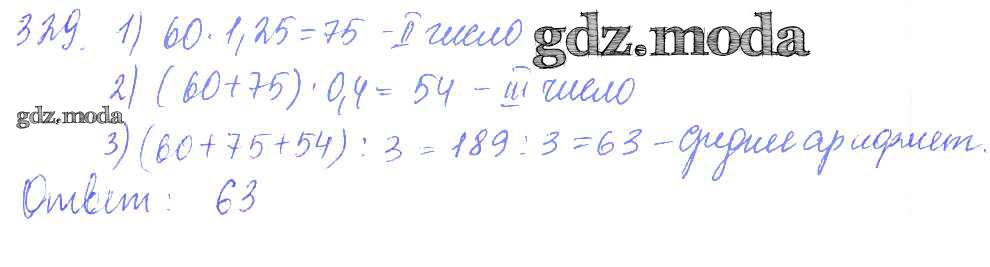 329. 1) 60 · 1,25 = 75 - II число
gdz.moda
2) (60 + 75) · 0,4 = 54 - III число
gdz.moda
3) (60 + 75 + 54) : 3 = 189 : 3 = 63 - среднее арифмет.
Ответ: 63